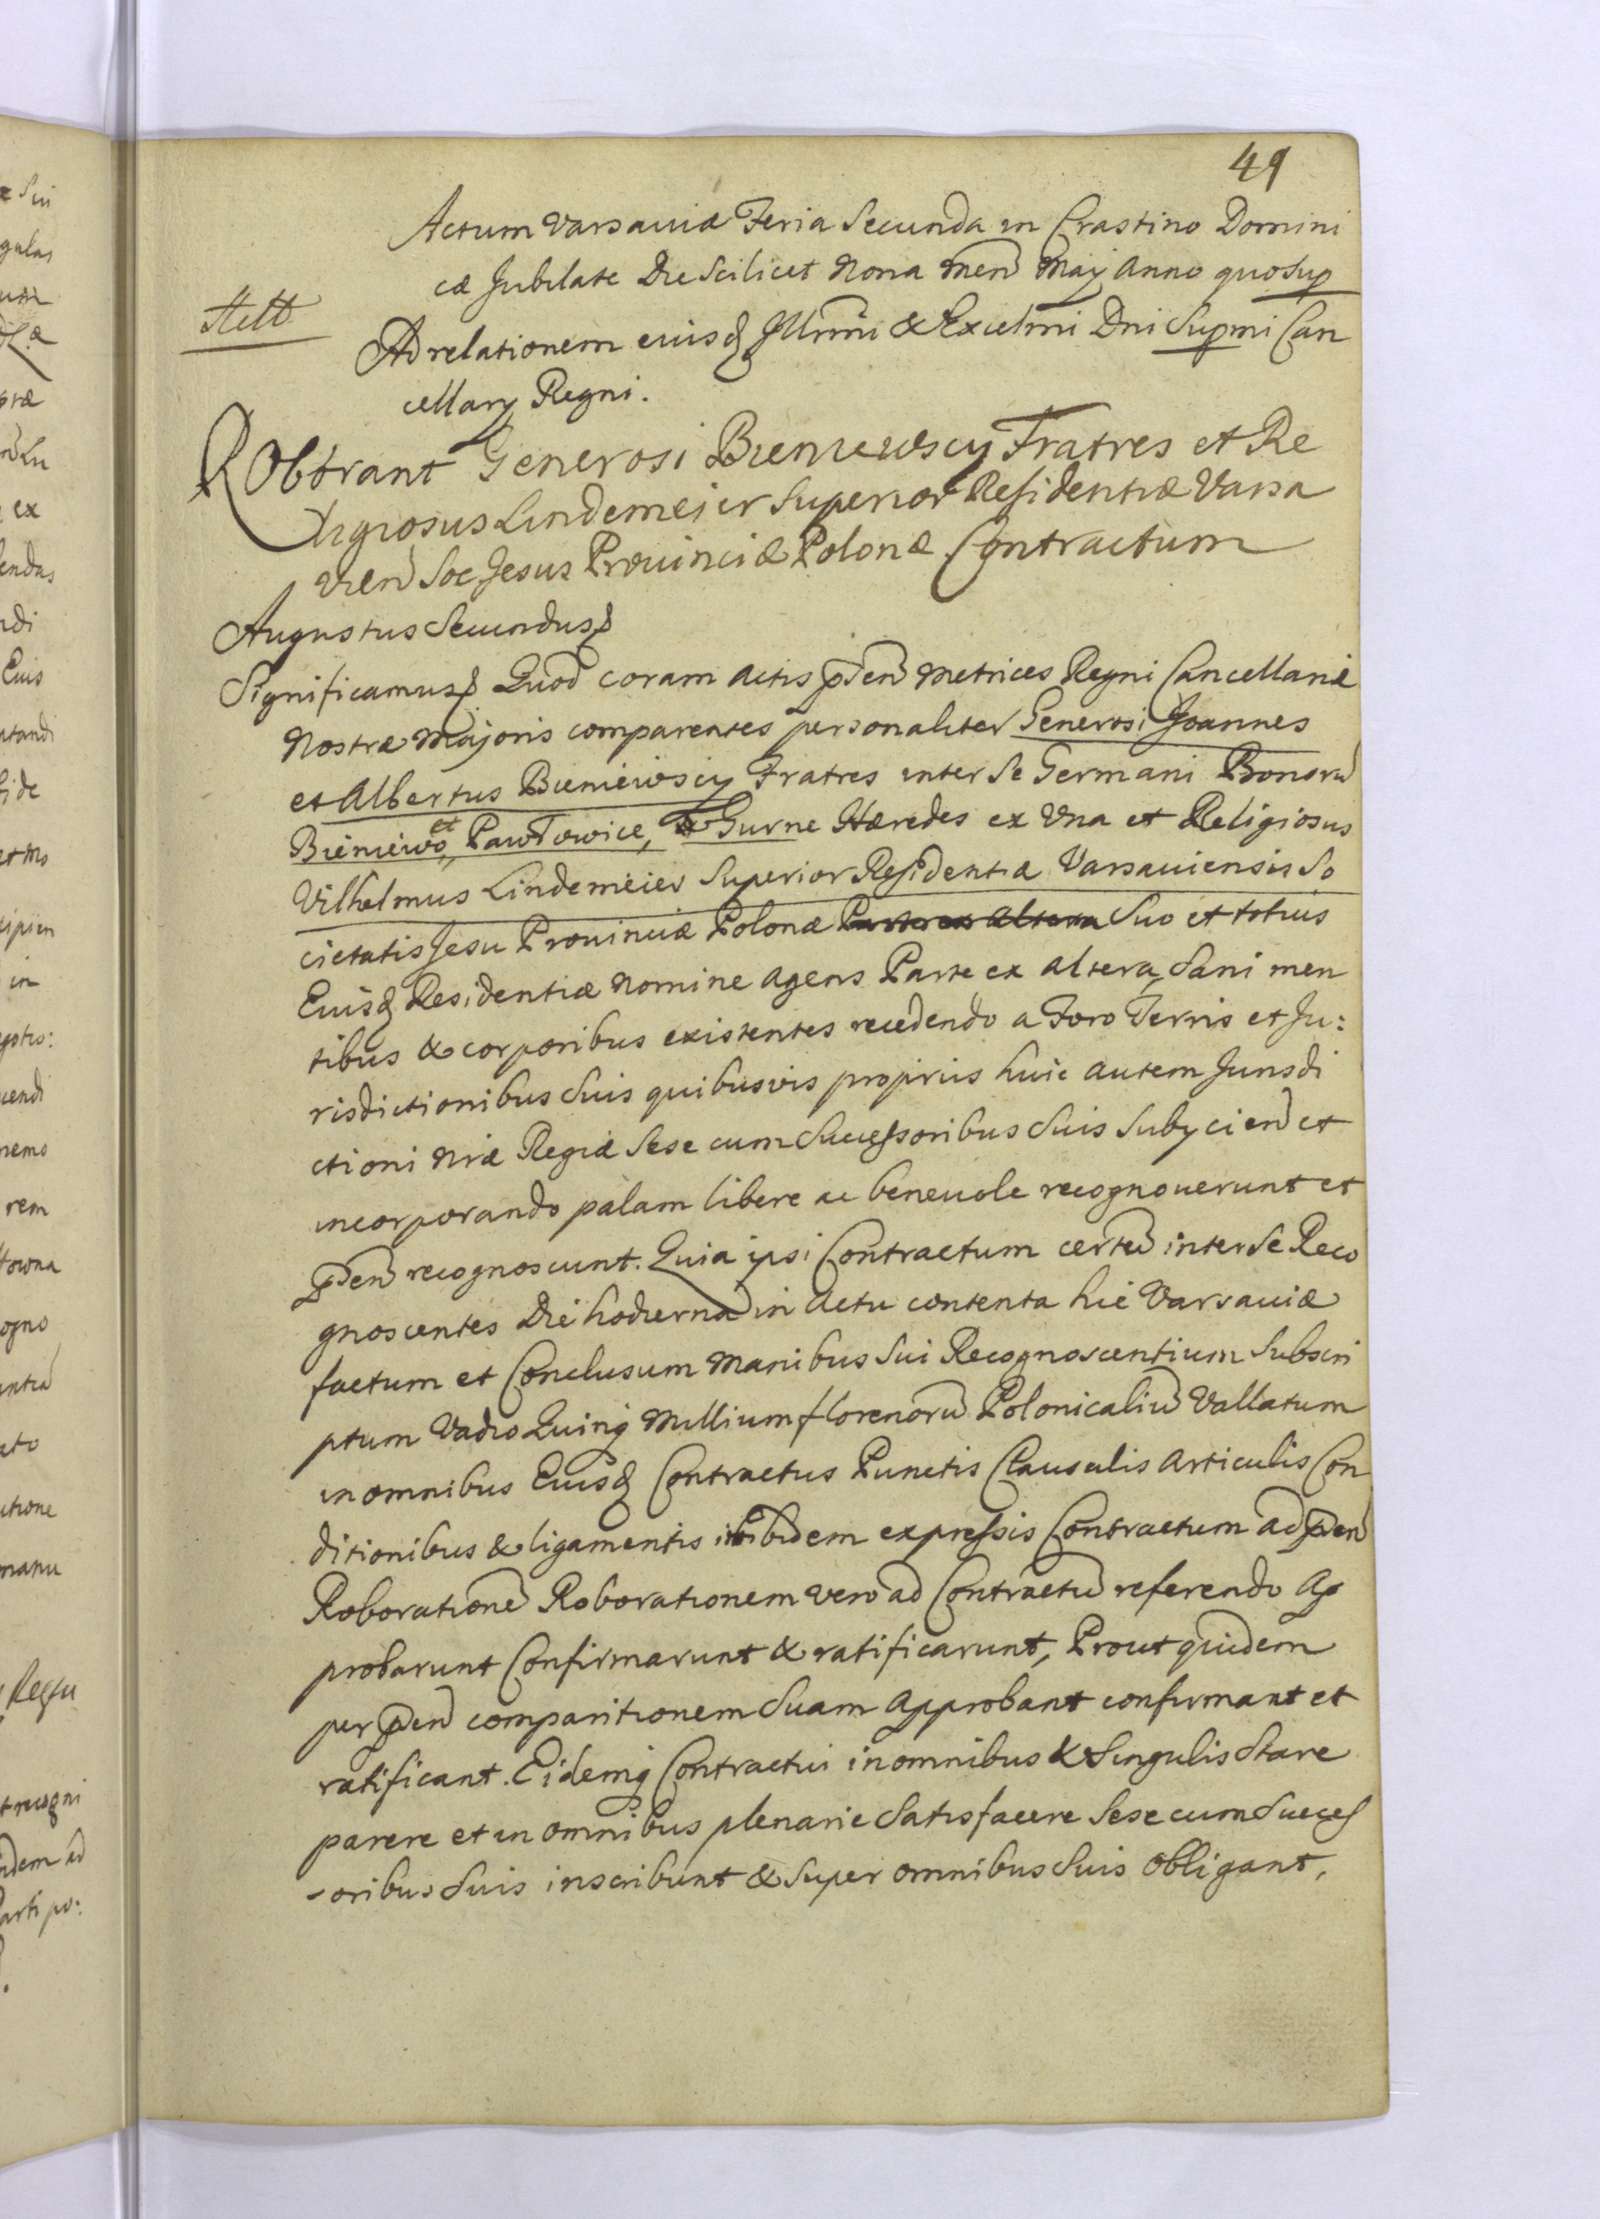 49
Actum Varsaviæ Feria Secunda in Crastino Domini
cæ Jubilate Die Scilicet Nona Men Maÿ Anno quo Sup
Ad relationem eiusq Illrmi & Excelmi Dni Supmi Can
cellarÿ Regni.
Roborant Generosi Bieniewscy Fratres et Re
ligiosus Lindemeier Superior Residentiæ Varsa
vien Soc Jesus Provinciæ Polonæ Contractum
Augustus Secundus
Significamus Quod coram Actis pñen Metrices Regni Cancellariæ
Nostræ Majoris comparentes personaliter Generosi Joannes
et Albertus Bieniewscÿ Fratres inter Se Germani Bonoru
Bieniewo, et Pawłowice, Gurne Hæredes ex Una et Religiosus
Vilhelmus Lindemeier Superior Residentiæ Varsauiensis So
cietatis Jesu Prouinciæ Polonæ Parte ex Altera Suo et totius
Eiusq Residentiæ Nomine Agens Parte ex Altera, Sani men
tibus & corporibus existentes recedendo a Foro Terris et Ju:
risdictionibus Suis quibusvis proprijs huic autem Jurisdi
ctioni Nræ Regiæ Sese cum Successoribus Suis Subÿcien et
incorporando palam libere ac beneuole recognouerunt et
pñen recognoscunt. Quia ipsi Contractum certu inter Se Reco
gnoscentes Die hodierna in Actu contenta hic Varsauiæ
factum et Conclusum Manibus Sui Recognoscentium Subscri
ptum Vadio Quinq Millium florenoru Polonicaliu Vallatum
in omnibus Eiusq Contractus Punctis Clausulis Articulis Con
ditionibus & ligamentis ibidem expressis Contractum ad pñen
Roboratione Roborationem vero ad Contractu referendo Ap
probarunt Confirmarunt & ratificarunt, Prout quidem
per pñen comparitionem Suam Approbant confirmant et
ratificant. Eidemq Contractui in omnibus & Singulis Stare
parere et in omnibus plenarie Satisfacere Sese cum Success
oribus Suis inscribunt & Super omnibus Suis Obligant,